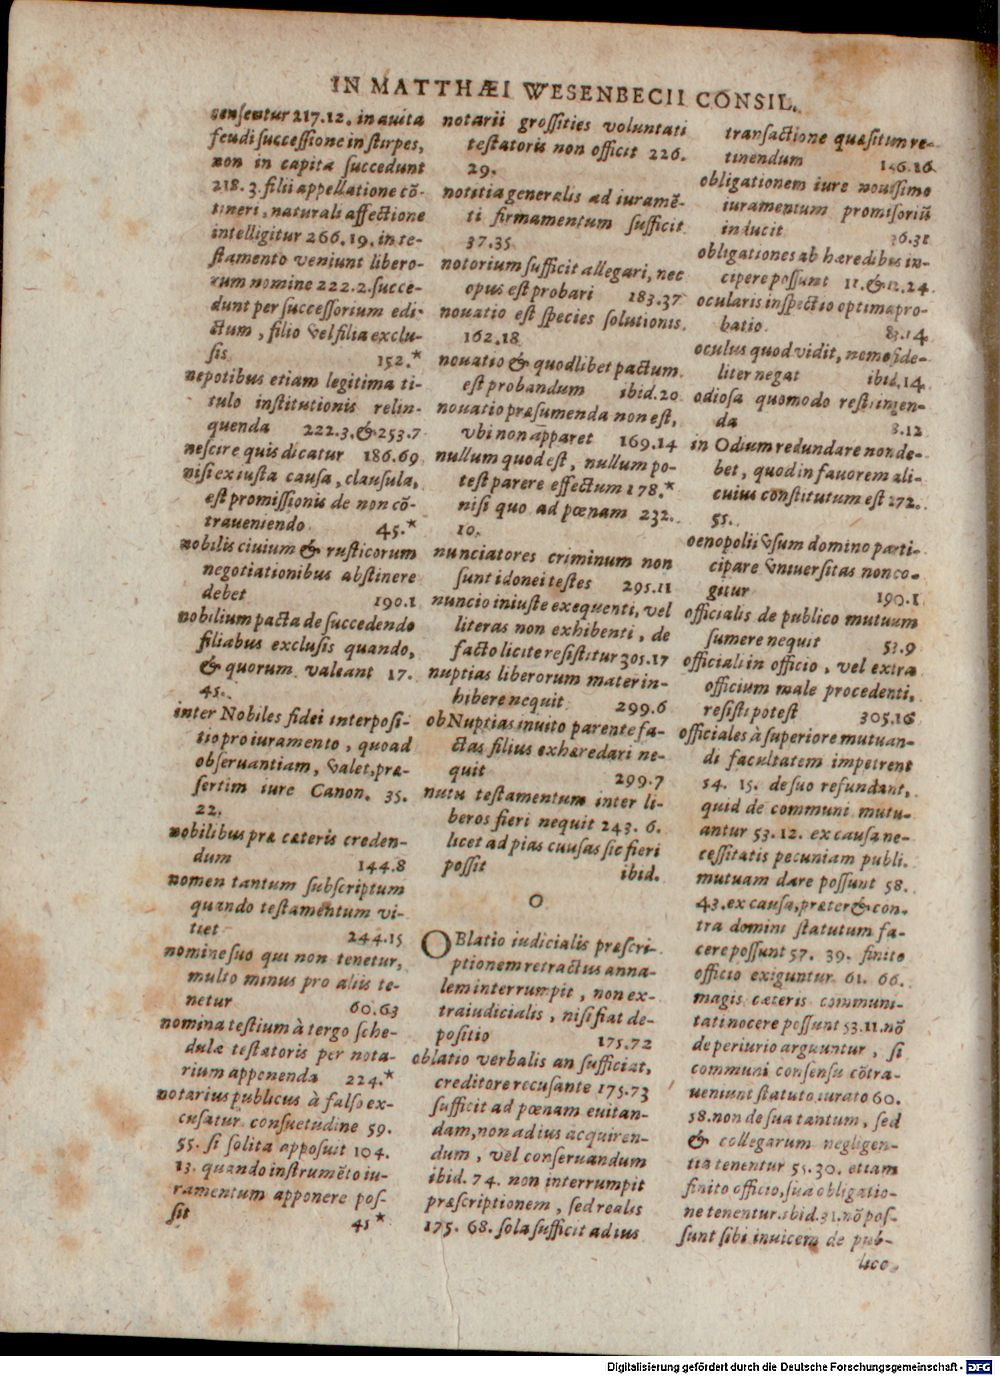 IN MATTHÆI WESENBECII CONSIL.
censentur 217.12. in auita
feudi successione in stirpes,
non in capita succedunt
218. 3. filii appellatione cō-
tineri, naturali affectione
intelligitur 266. 19. in te-
stamento veniunt libero-
rum nomine 222.2. succe-
dunt per successorium edi-
ctum, filio vel filia exclu-
sis 152.*
nepotibus etiam legitima ti-
tulo institutionis relin-
quenda 222.3. & 253.7
nescire quis dicatur 186.69
nisi ex iusta causa, clausula,
est promissionis de non cō-
traueniendo 45.*
nobilis ciuium & rusticorum
negotiationibus abstinere
debet 190.1
nobilium pacta de succedendo
filiabus exclusis quando,
& quorum valeant 17.
45.
inter Nobiles fidei interposi-
tio pro iuramento, quoad
obseruantiam, valet, præ-
sertim iure Canon. 35.
22.
nobilibus præ cæteris creden-
dum 144.8
nomen tantum subscriptum
quando testamentum vi-
tiet 244.15
nomine suo qui non tenetur,
multo minus pro aliis te-
netur 60.63
nomina testium à tergo sche-
dulæ testatoris per nota-
rium apponenda 224.*
notarius publicus à falso ex-
cusatur consuetudine 59.
55. si solita apposuit 104.
13. quando instrumēto iu-
ramentum apponere pos-
sit 45*
notarii grossities voluntati
testatoris non officit 226.
29.
notitia generalis ad iuramē-
ti firmamentum sufficit
37.35
notorium sufficit allegari, nec
opus est probari 183.37
nouatio est species solutionis
162.18
nouatio & quodlibet pactum
est probandum ibid.20
nouatio præsumenda non est,
vbi non apparet 169.14
nullum quod est, nullum po-
test parere effectum 178.*
nisi quo ad pœnam 232.
10.
nunciatores criminum non
sunt idonei testes 295.11
nuncio iniuste exequenti, vel
literas non exhibenti, de
facto licite resistitur 305.17
nuptias liberorum mater in-
hibere nequit 299.6
ob Nuptias inuito parente fa-
ctas filius exhæredari ne-
quit 299.7
nutu testamentum inter li-
beros fieri nequit 243. 6.
licet ad pias causas sic fieri
possit ibid.
O
OBlatio iudicialis præscri-
ptionem retractus anna-
lem interrumpit, non ex-
traiudicialis, nisi fiat de-
positio 175.72
oblatio verbalis an sufficiat,
creditore recusante 175.73
sufficit ad pœnam euitan-
dam, non ad ius acquiren-
dum, vel conseruandum
ibid. 74. non interrumpit
præscriptionem, sed realis
175. 68. sola sufficit ad ius
transactione quæsitum re-
tinendum 146.16
obligationem iure nouissimo
iuramentum promissoriū
inducit 36.31
obligationes ab hæredibus in-
cipere possunt 11. & 12.24.
ocularis inspectio optima pro-
batio 83.14
oculus quod vidit, nemo fide-
liter negat ibid.14
odiosa quomodo restringen-
da 8.12
in Odium redundare non de-
bet, quod in fauorem ali-
cuius constitutum est 172.
55.
oenopolii vsum domino parti-
cipare vniuersitas non co-
gitur 190.1
officialis de publico mutuum
sumere nequit 53.9
officiali in officio, vel extra
officium male procedenti,
resisti potest 305.16
officiales à superiore mutuan-
di facultatem impetrent
54. 15. de suo refundant,
quid de communi mutu-
antur 53.12. ex causa ne-
cessitatis pecuniam publi.
mutuam dare possunt 58.
43. ex causa, præter & con-
tra domini statutum fa-
cere possunt 57. 39. finito
officio exiguntur 61. 66.
magis cæteris communi-
tati nocere possunt 53.11. nō
de periurio arguuntur, si
communi consensu cōtra-
ueniunt statuto iurato 60.
58. non de sua tantum, sed
& collegarum negligen-
tia tenentur 55.30. etiam
finito officio, sua obligatio-
ne tenentur. ibid. 31. nō pos-
sunt sibi inuicem de pub-
lico
Digitalisierung gefördert durch die Deutsche Forschungsgemeinschaft - DFG